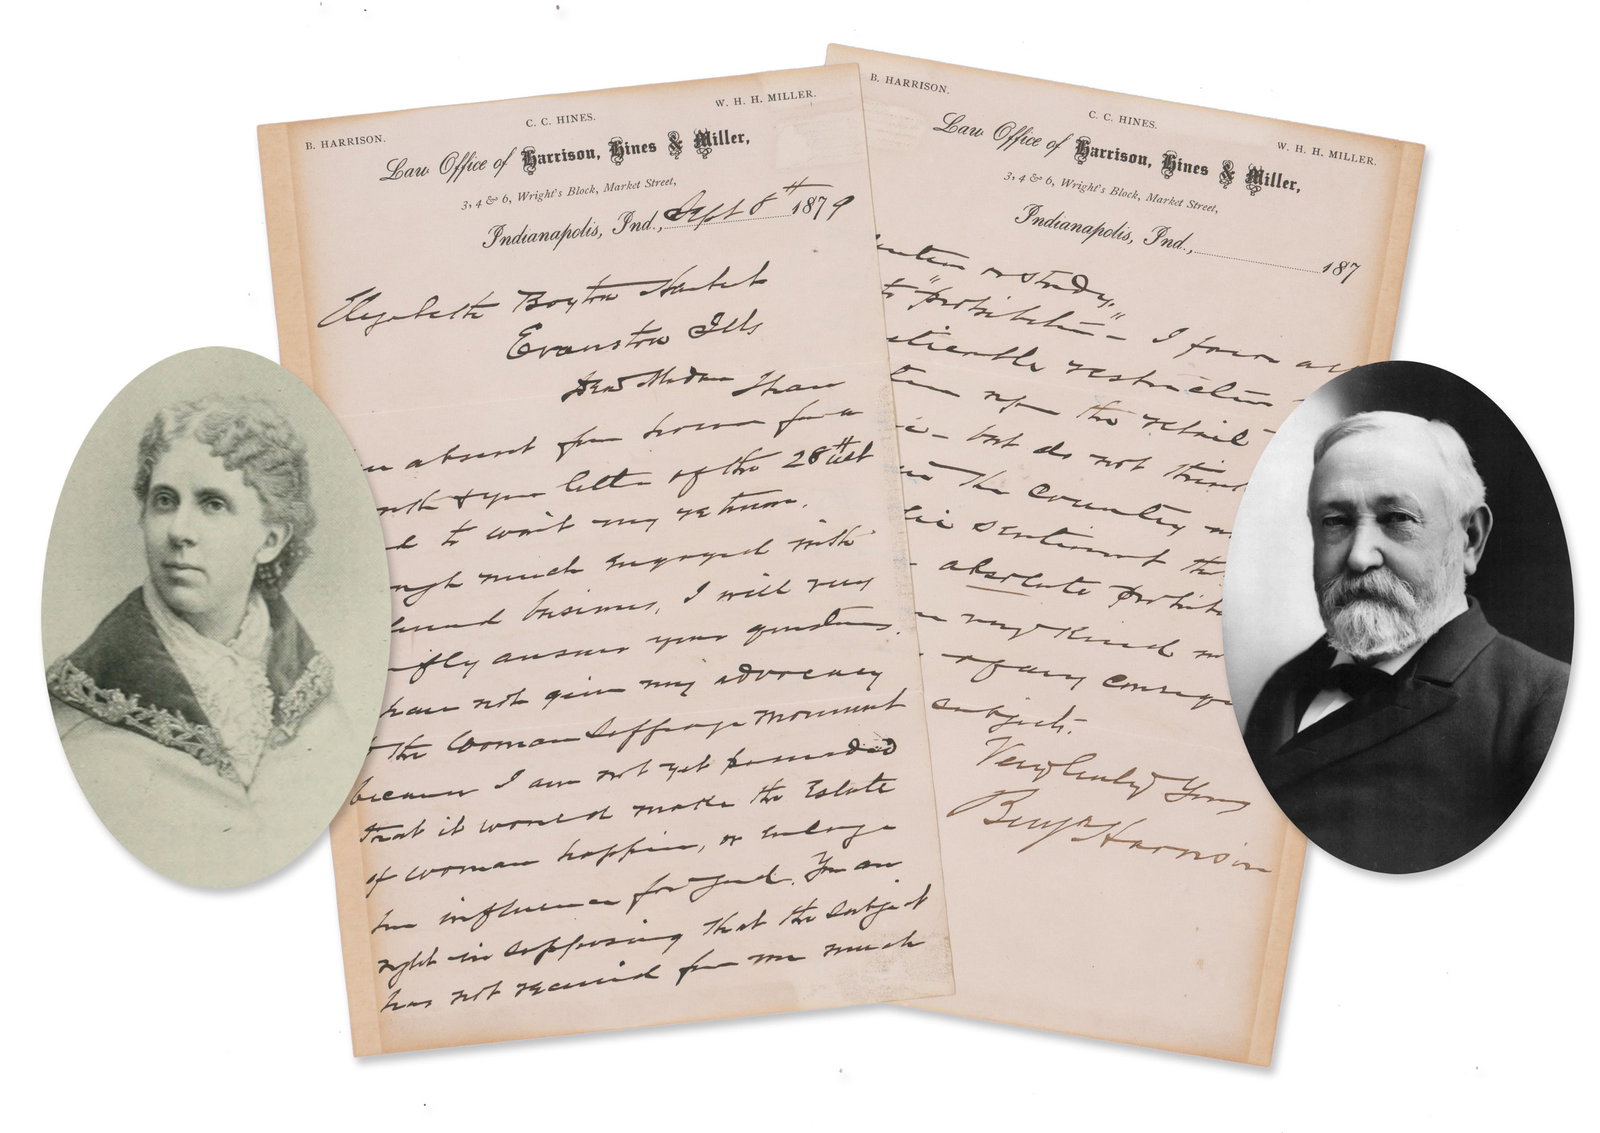 B. HARRISON.
C. C. HINES.
W. H. H. MILLER.
Law Office of Harrison, Hines & Miller,
3, 4 & 6, Wright's Block, Market Street,
Indianapolis, Ind., Sept 8th 1879
Elizabeth Boyton Harbert
Evanston Ills
Dear Madam I have
absent from home for a
& your letter of the 28th ult
to wait my return.
much engaged with
business, I will very
answer your questions.
have not given my advocacy
the Woman Suffrage movement
because I am not yet persuaded
that it would make the Estate
of woman happier, or enlarge
her influence for good. You are
right in supposing that the subject
has not received from me much
B. HARRISON.
C. C. HINES.
W. H. H. MILLER.
Law Office of Harrison, Hines & Miller,
3, 4 & 6, Wright's Block, Market Street,
Indianapolis, Ind., 187
or study.
to "prohibition" - I favor
restriction
up the retail
- but do not think
the country
sentiment
- absolute
any kind
- of any
subject.
Very truly Yours
Benj Harrison